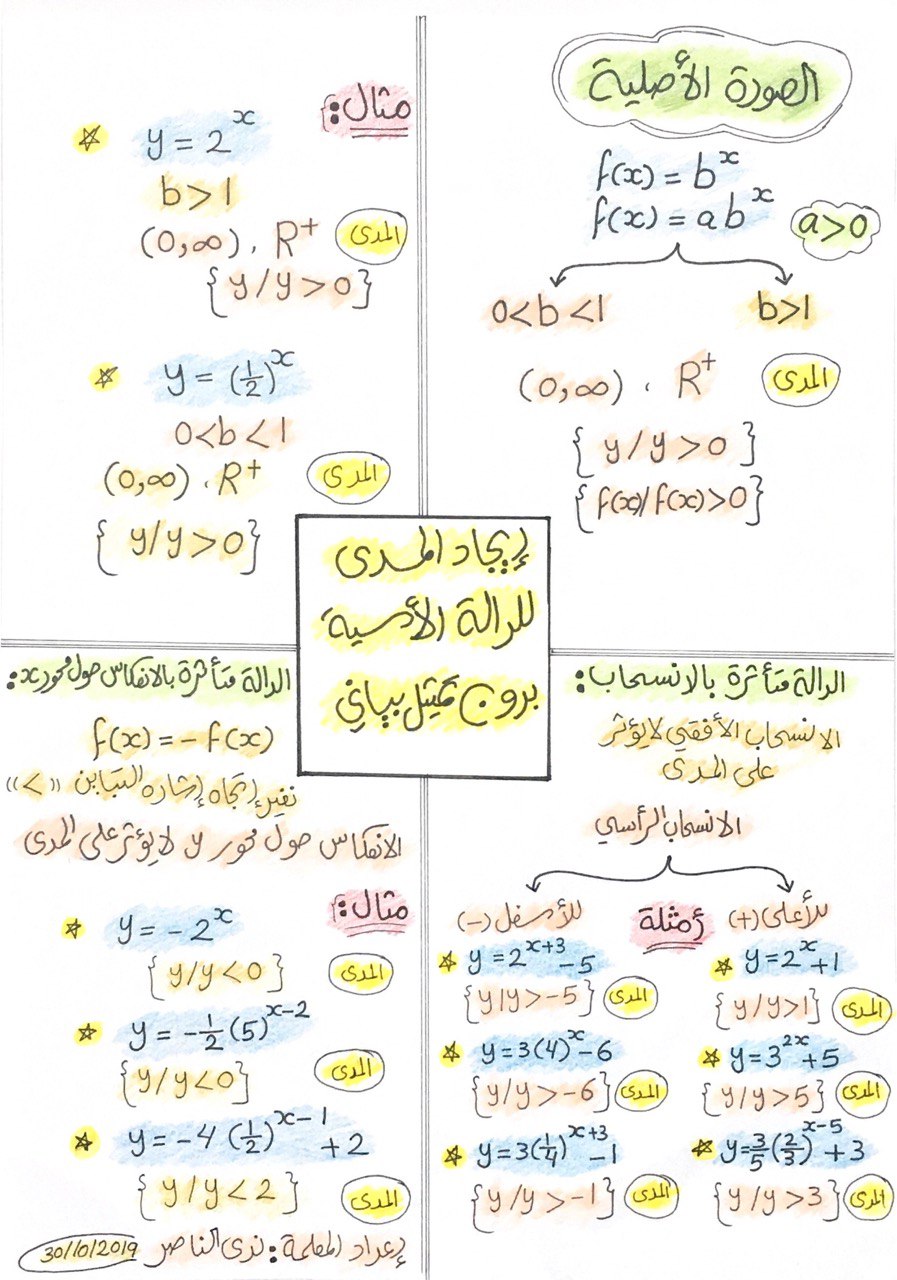 إيجاد المدى
للدالة الأسية
بدون تمثيل بياني
الصورة الأصلية
f(x) = b^x
f(x) = a b^x
a>0
b>1
0<b<1
المدى
R⁺ ، (0,∞)
{ y / y > 0 }
{ f(x)/f(x)>0 }
مثال:
y = 2^x
b>1
المدى
R⁺ ، (0,∞)
{ y / y > 0 }
y = (1/2)^x
0<b<1
المدى
R⁺ ، (0,∞)
{ y/y>0 }
الدالة متأثرة بالانسحاب:
الانسحاب الأفقي لا يؤثر
على المدى
الانسحاب الرأسي
للأعلى (+)
أمثلة
للأسفل (-)
y = 2^x + 1
{ y / y>1 } المدى
y = 3^2x + 5
{ y / y>5 } المدى
y = 3/5 (2/3)^x-5 + 3
{ y / y>3 } المدى
y = 2^x+3 - 5
{ y | y>-5 } المدى
y = 3(4)^x - 6
{ y / y>-6 } المدى
y = 3(1/4)^x+3 - 1
{ y / y>-1 } المدى
الدالة متأثرة بالانعكاس حول محور x:
f(x) = - f(x)
نغير إتجاه إشاره التباين «>»
الانعكاس حول محور y لا يؤثر على المدى
مثال:
y = - 2^x
{ y / y<0 } المدى
y = - 1/2 (5)^x-2
{ y / y<0 } المدى
y = -4 (1/2)^x-1 + 2
{ y / y<2 } المدى
إعداد المعلمة: ندى الناصر 30/10/2019